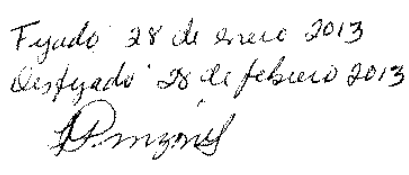 Fijado 28 de enero 2013
Desfijado 28 de febrero 2013